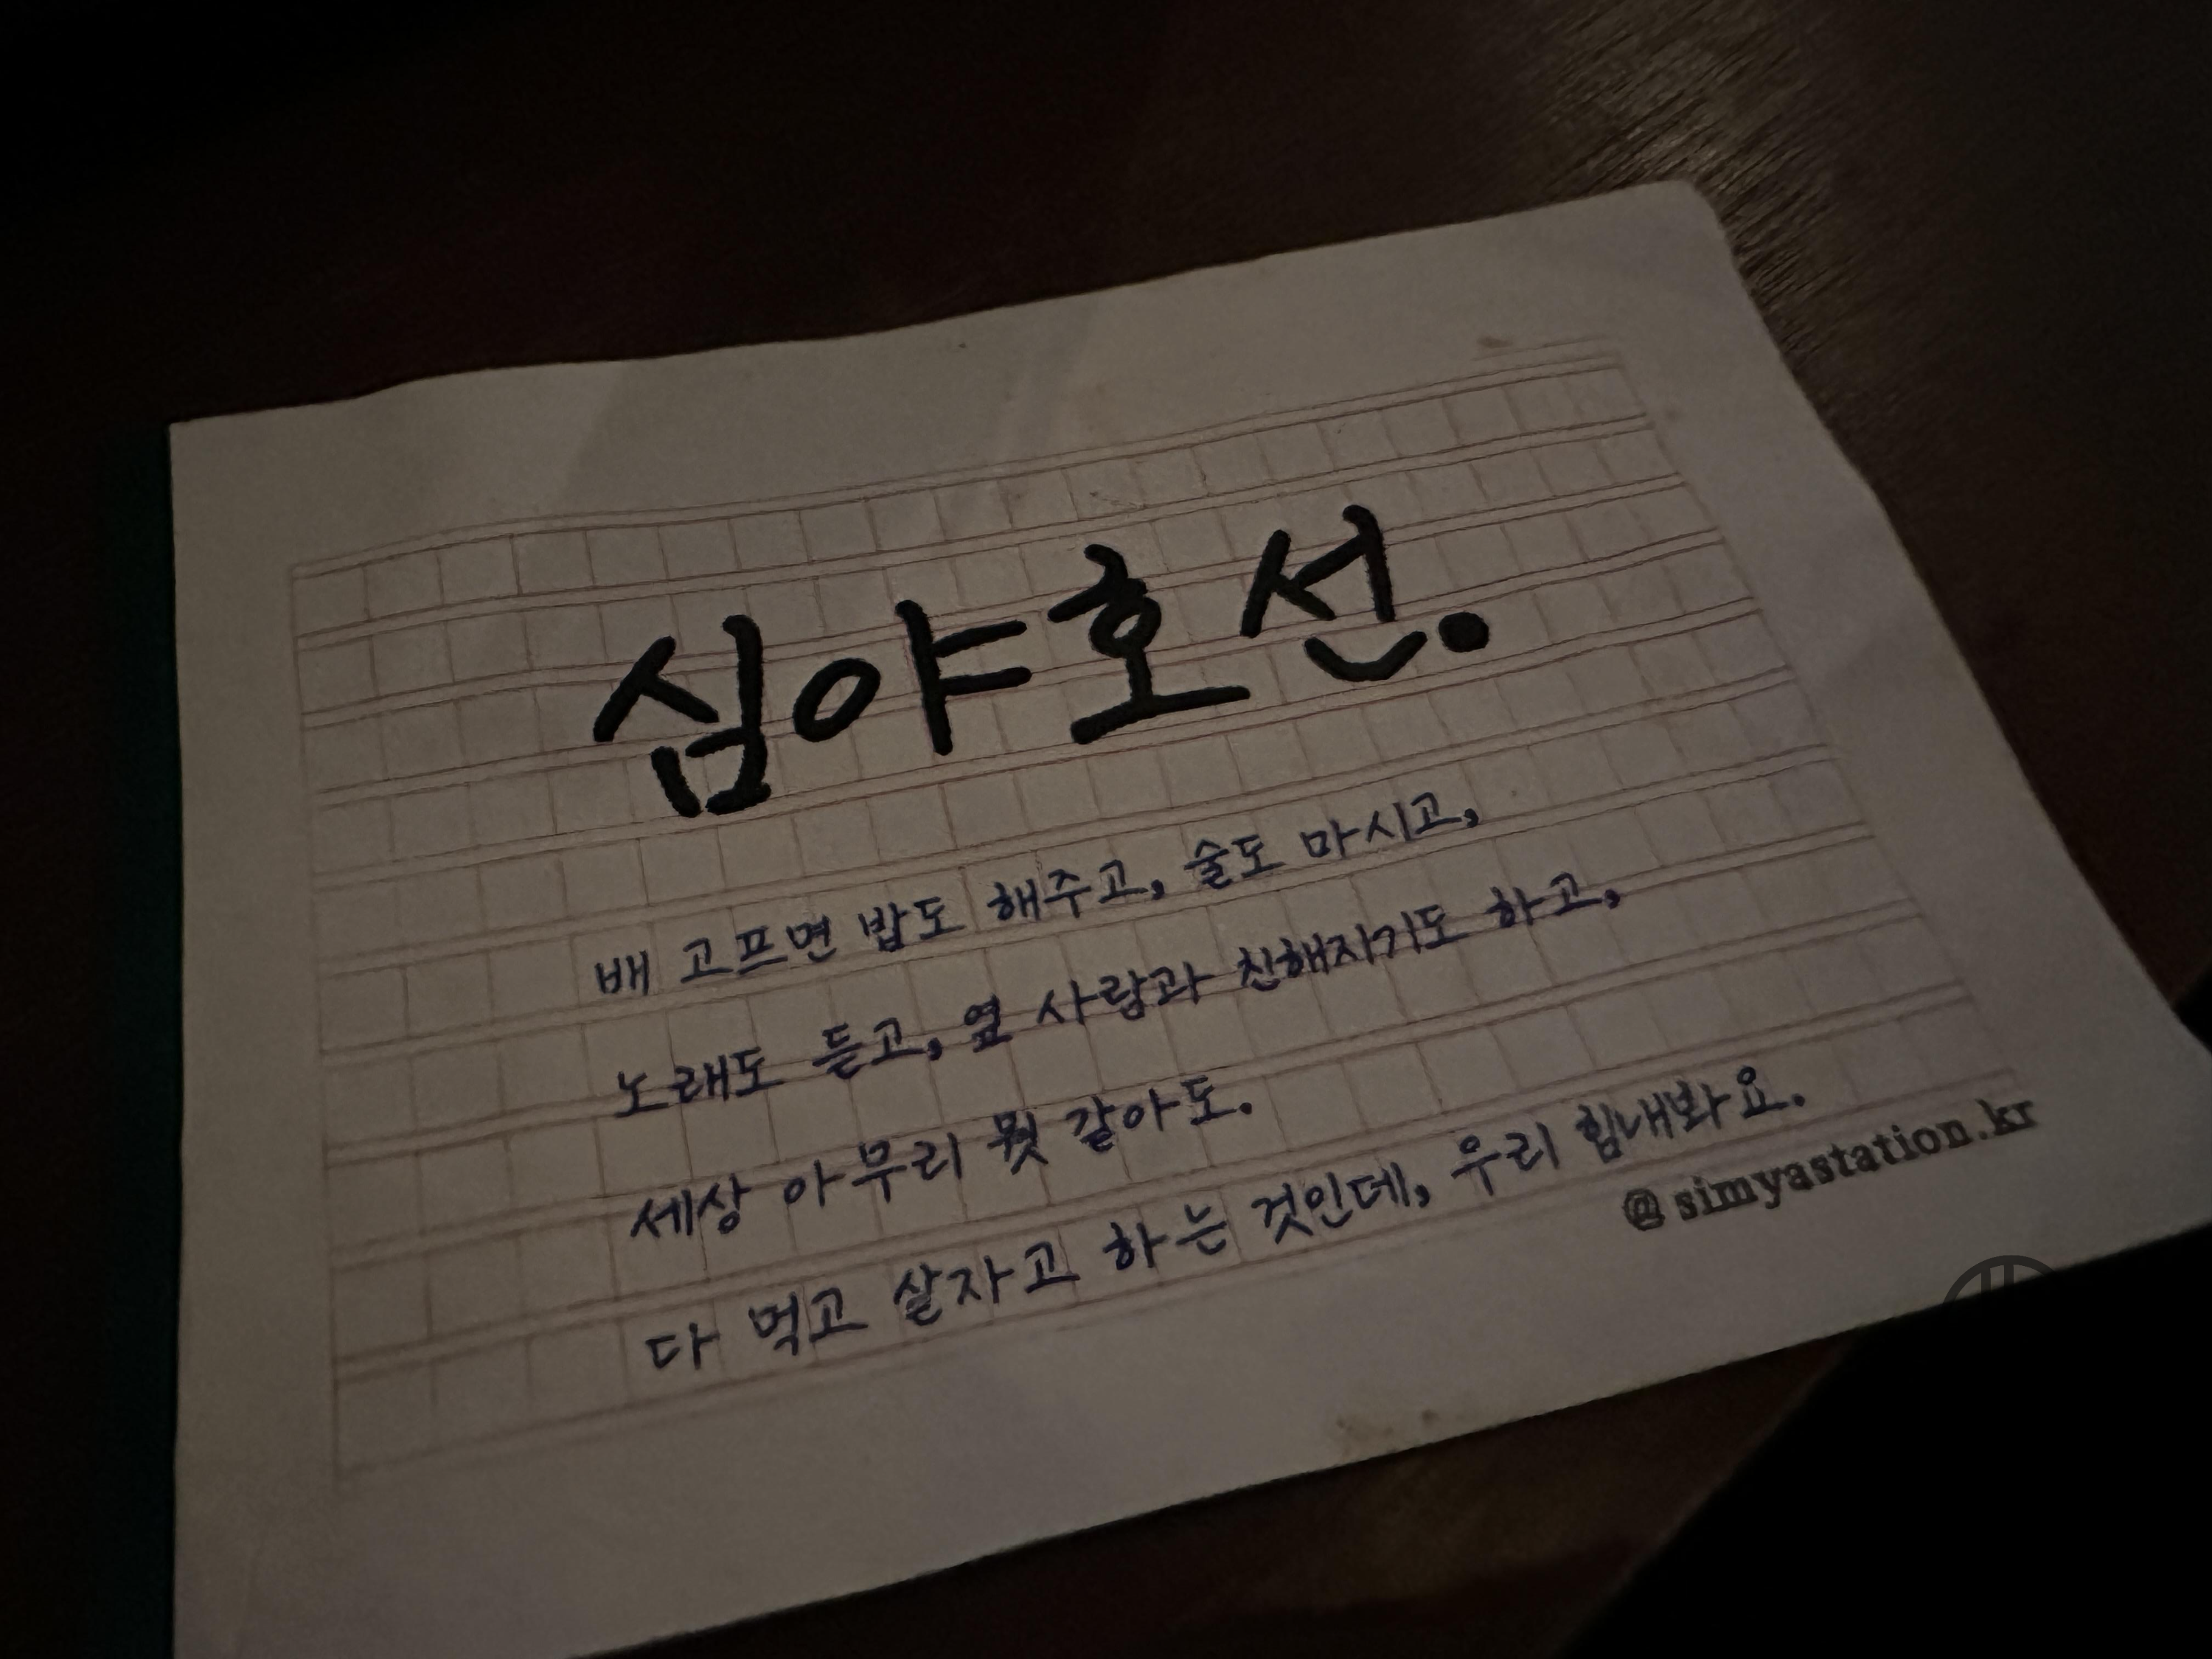 심야호선.
배 고프면 밥도 해주고, 술도 마시고,
노래도 듣고, 옆 사람과 친해지기도 하고,
세상 아무리 뭣 같아도.
다 먹고 살자고 하는 것인데, 우리 힘내봐요.
@simyastation.kr